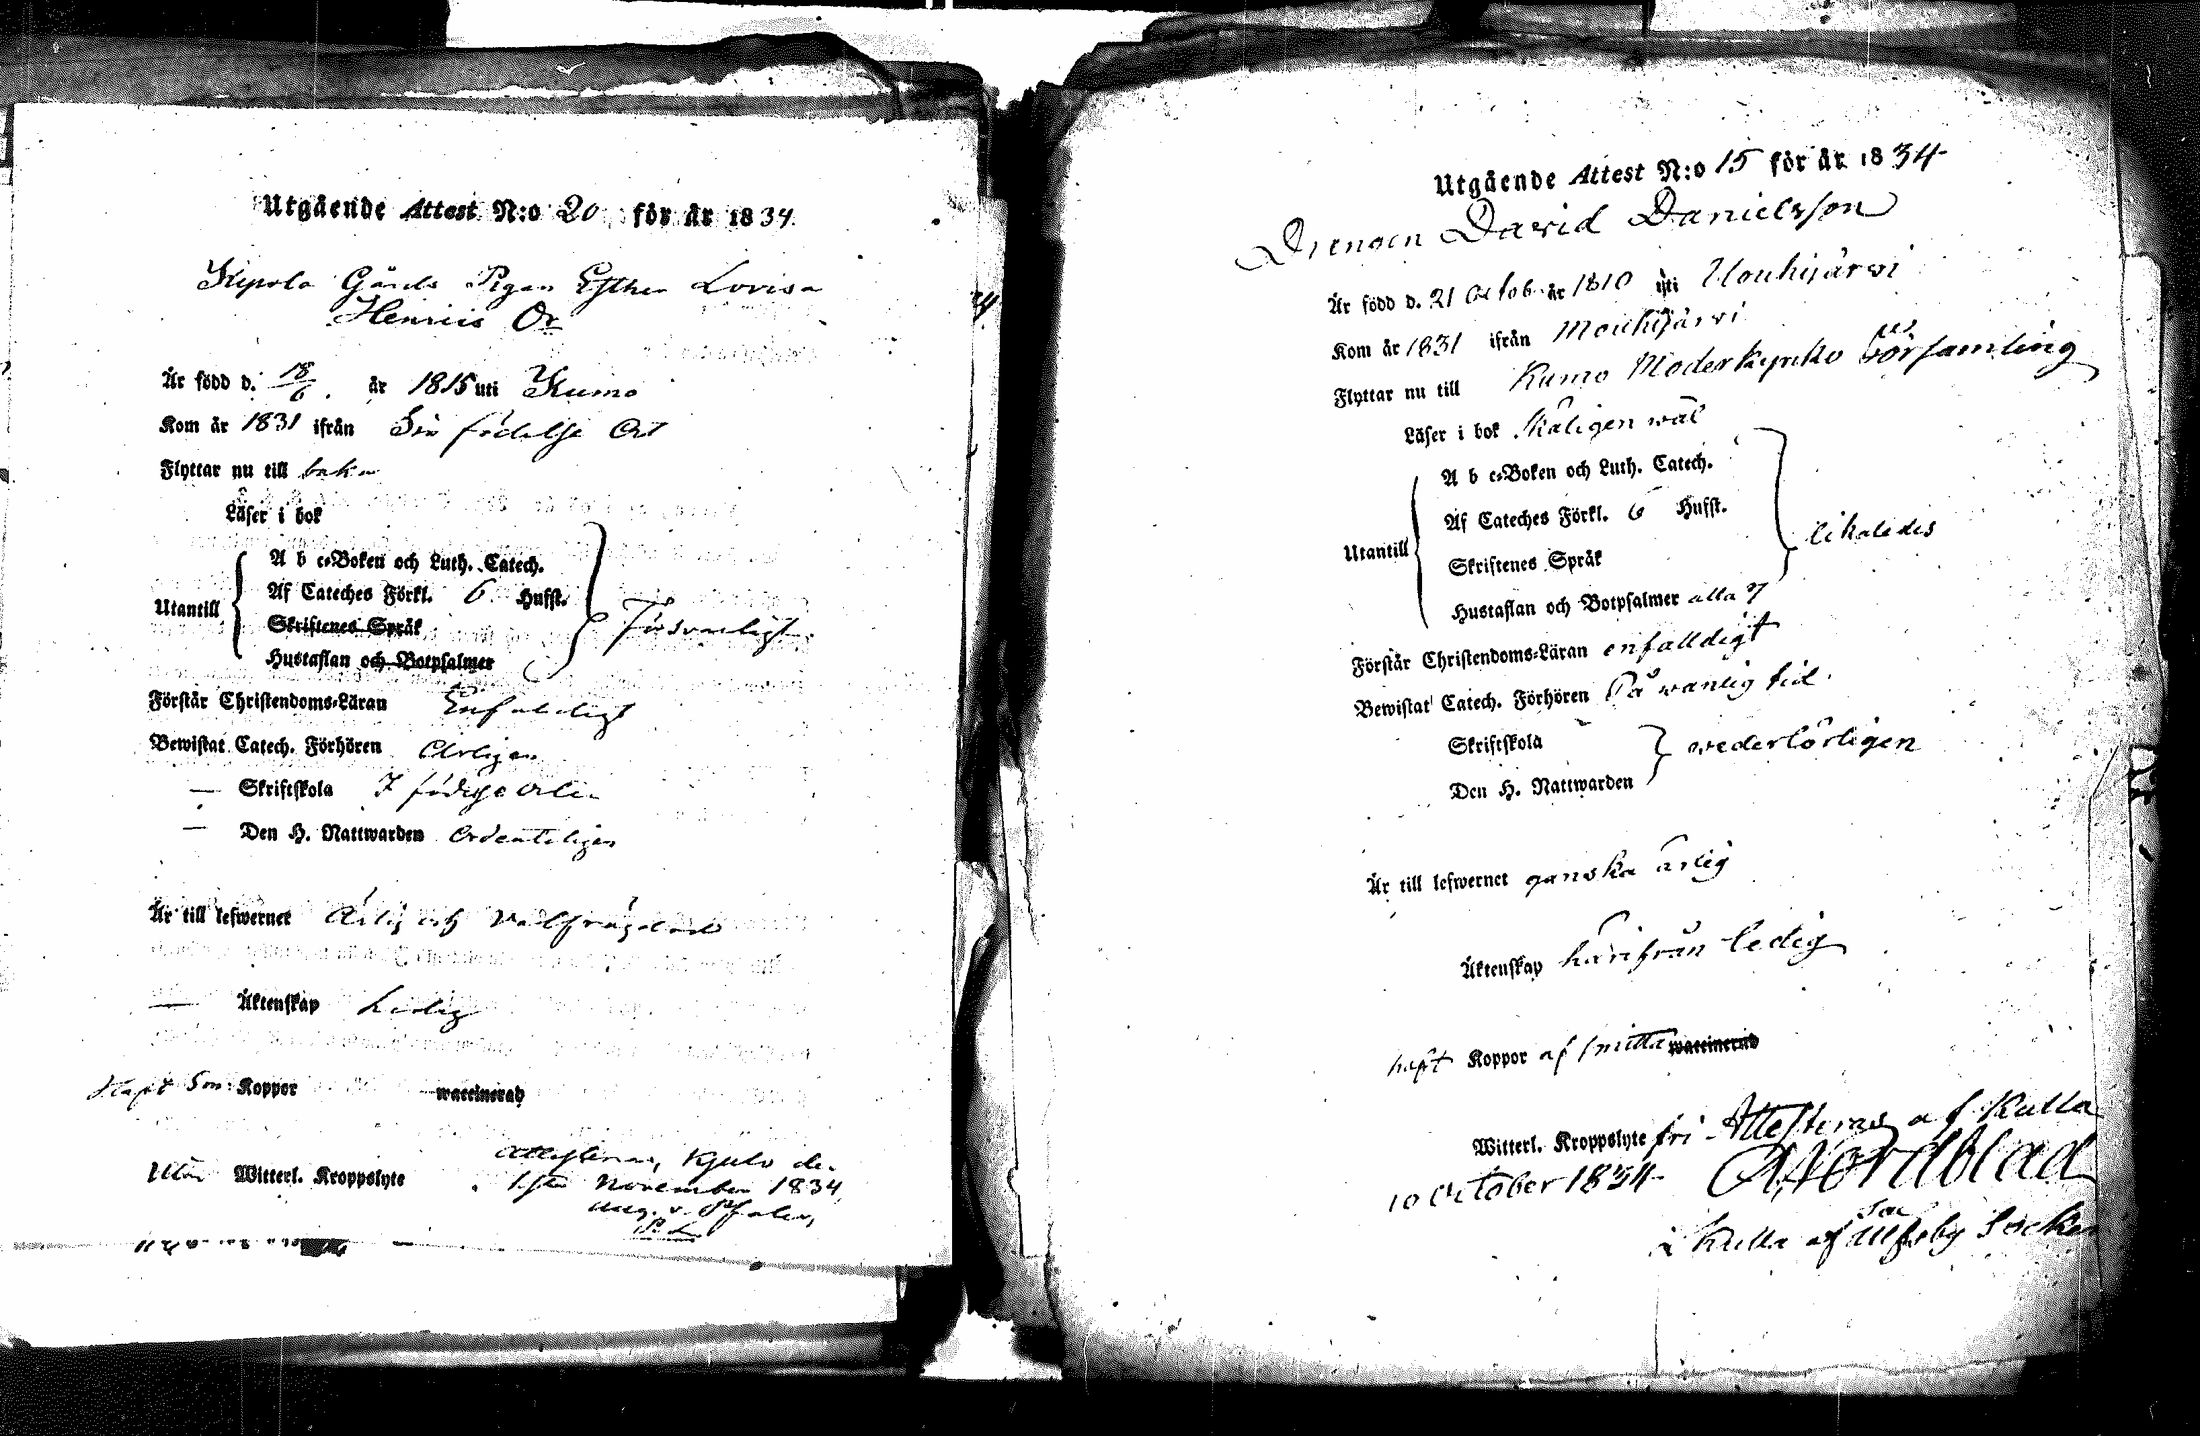 Utgående Attest N:o 20 för år 1834.
Kjpola Gårds Pigan Esther Lovisa
Henrics Dr
Är född d. 18/6. år 1815 uti Kumo
Kom år 1831 ifrån Sin födelse Ort
Flyttar nu till baka
Läser i bok
A b c-Boken och Luth. Catech.
Af Cateches Förkl. 6 Hufst.
Utantill
Skriftenes Språk
Försvarligt
Hustaflan och Botpsalmer
Förstår Christendoms-Läran Enfaldigt
Bewistat Catech. Förhören Årligen
— Skriftskola I födelse orten
— Den H. Nattwarden Ordenteligen
Är till lefwernet Ärlig och välfrägdad
— Äktenskap Ledig
Haft Koppor waccinerad
Utan Witterl. Kroppslyte
Attesteras, Kjulo den
1sta November 1834,
Utgående Attest N:o 15 för år 1834
Drengen David Danielsson
Är född d. 21 Octob. år 1810 uti Mouhijärvi
Kom år 1831 ifrån Mouhijärvi
Flyttar nu till Kumo Moderkyrko Församling
Läser i bok skäligen wäl
A b c-Boken och Luth. Catech.
Af Cateches Förkl. 6 Hufst.
Utantill
likaledes
Skriftenes Språk
Hustaflan och Botpsalmer alla 7
Förstår Christendoms-Läran enfalldigt
Bewistat Catech. Förhören På wanlig tid.
Skriftskola
wederbörligen
Den H. Nattwarden
Är till lefwernet ganska ärlig
Äktenskap härifrån ledig
haft Koppor af smitta waccinerad
Witterl. Kroppslyte fri Attesteras af Kulla
10 October 1834 Nordblad
i Kulla af Ulfsby Socken